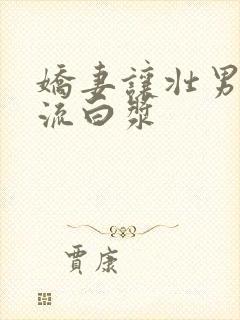 嬌妻讓壯男
流白漿
賈康